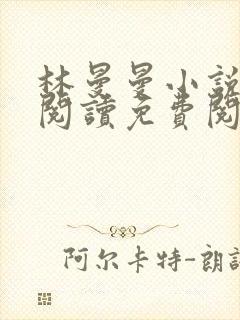 林曼曼小説
閱讀免費閱
阿尔卡特-朗訊